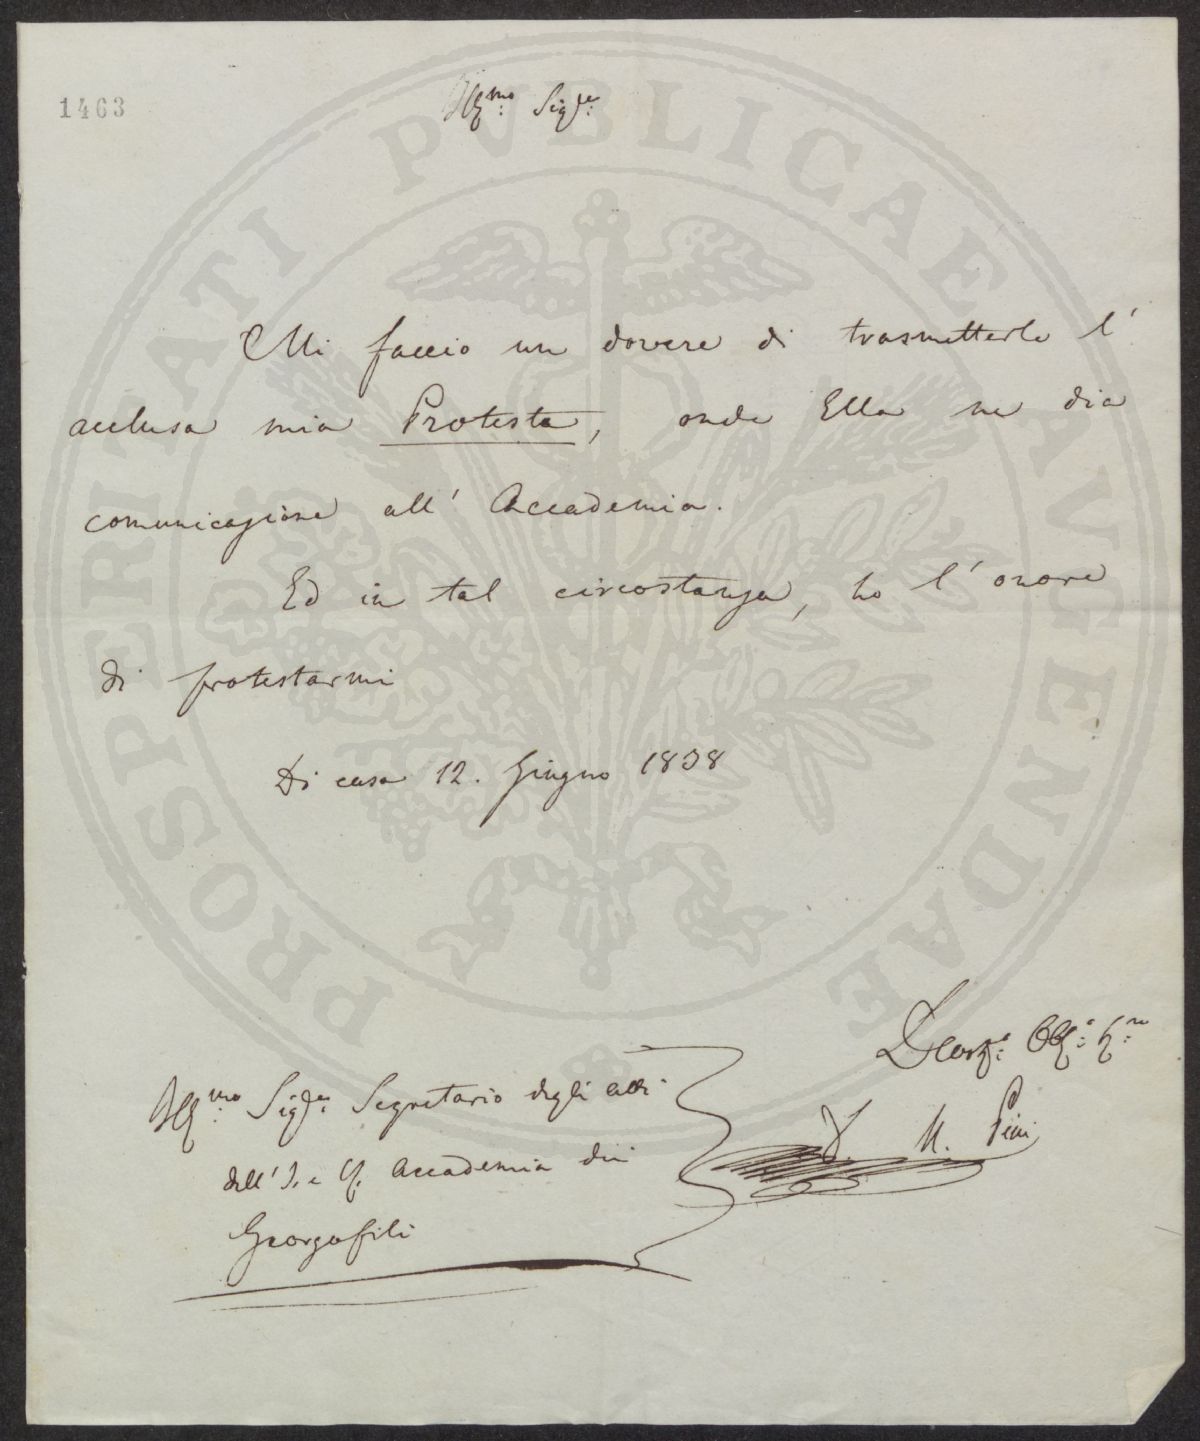 1463
Ill.mo Sig.re
Mi faccio un dovere di trasmetterle l'
acclusa mia Protesta, onde Ella ne dia
comunicazione all' Accademia.
Ed in tal circostanza, ho l'onore
di protestarmi
Di casa 12. Giugno 1838
Obb.o
Ill.mo Sig.re Segretario degli atti
dell' I. e R. Accademia dei
Georgofili
M. Pieri
PROSPERITATI PVBLICAE AVGENDAE